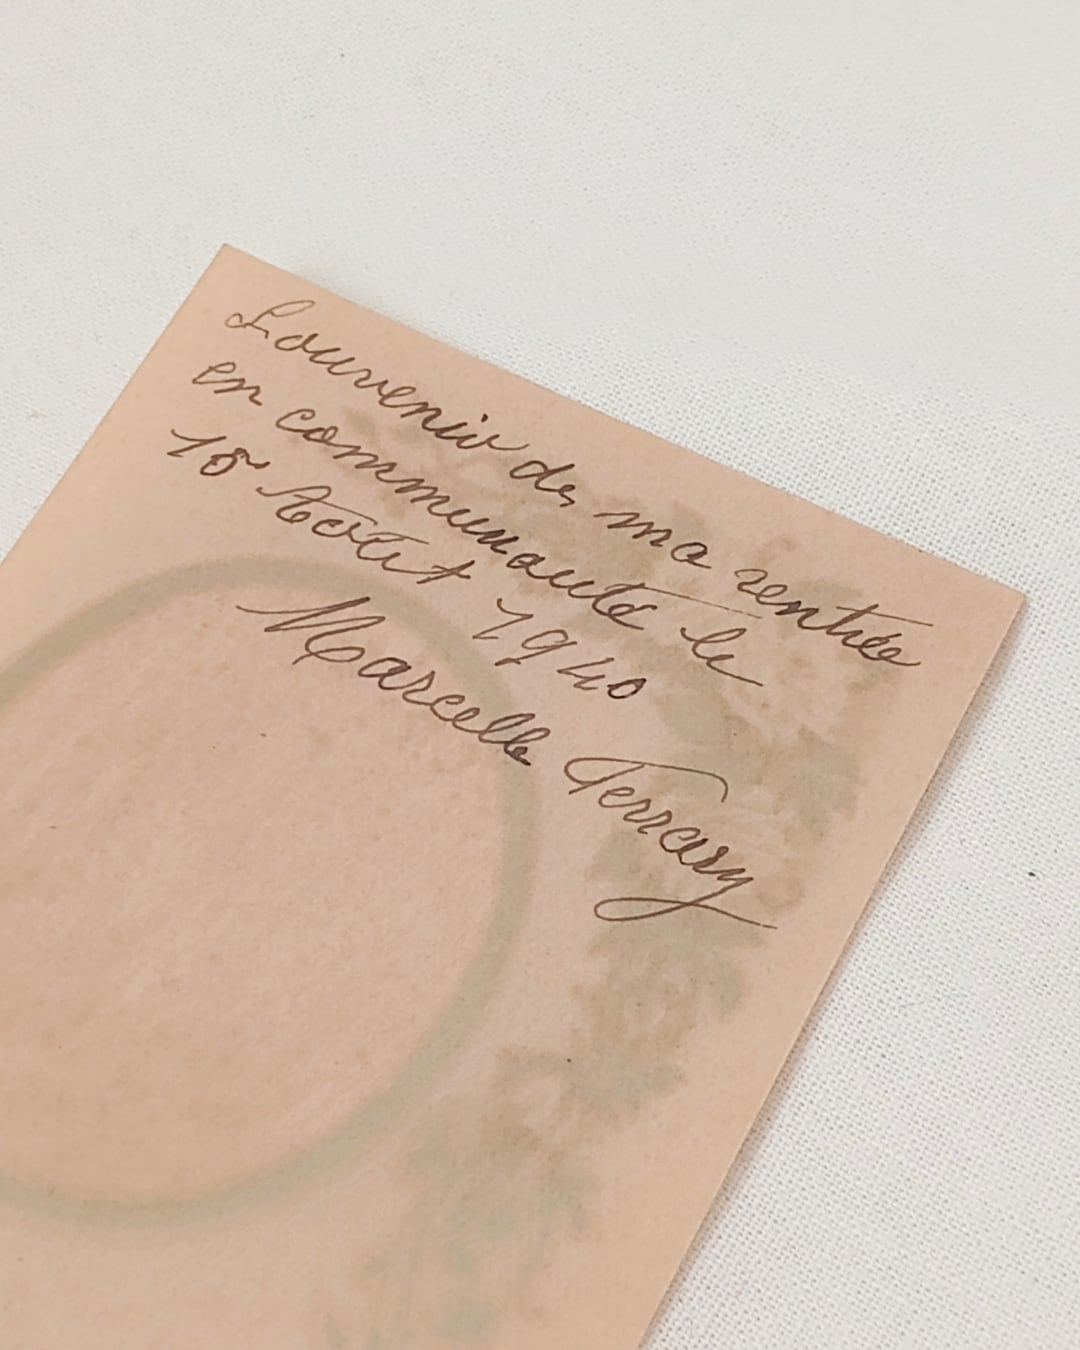 Souvenir de ma rentrée
en communauté le
15 Août 1940
Marcelle Terrasy